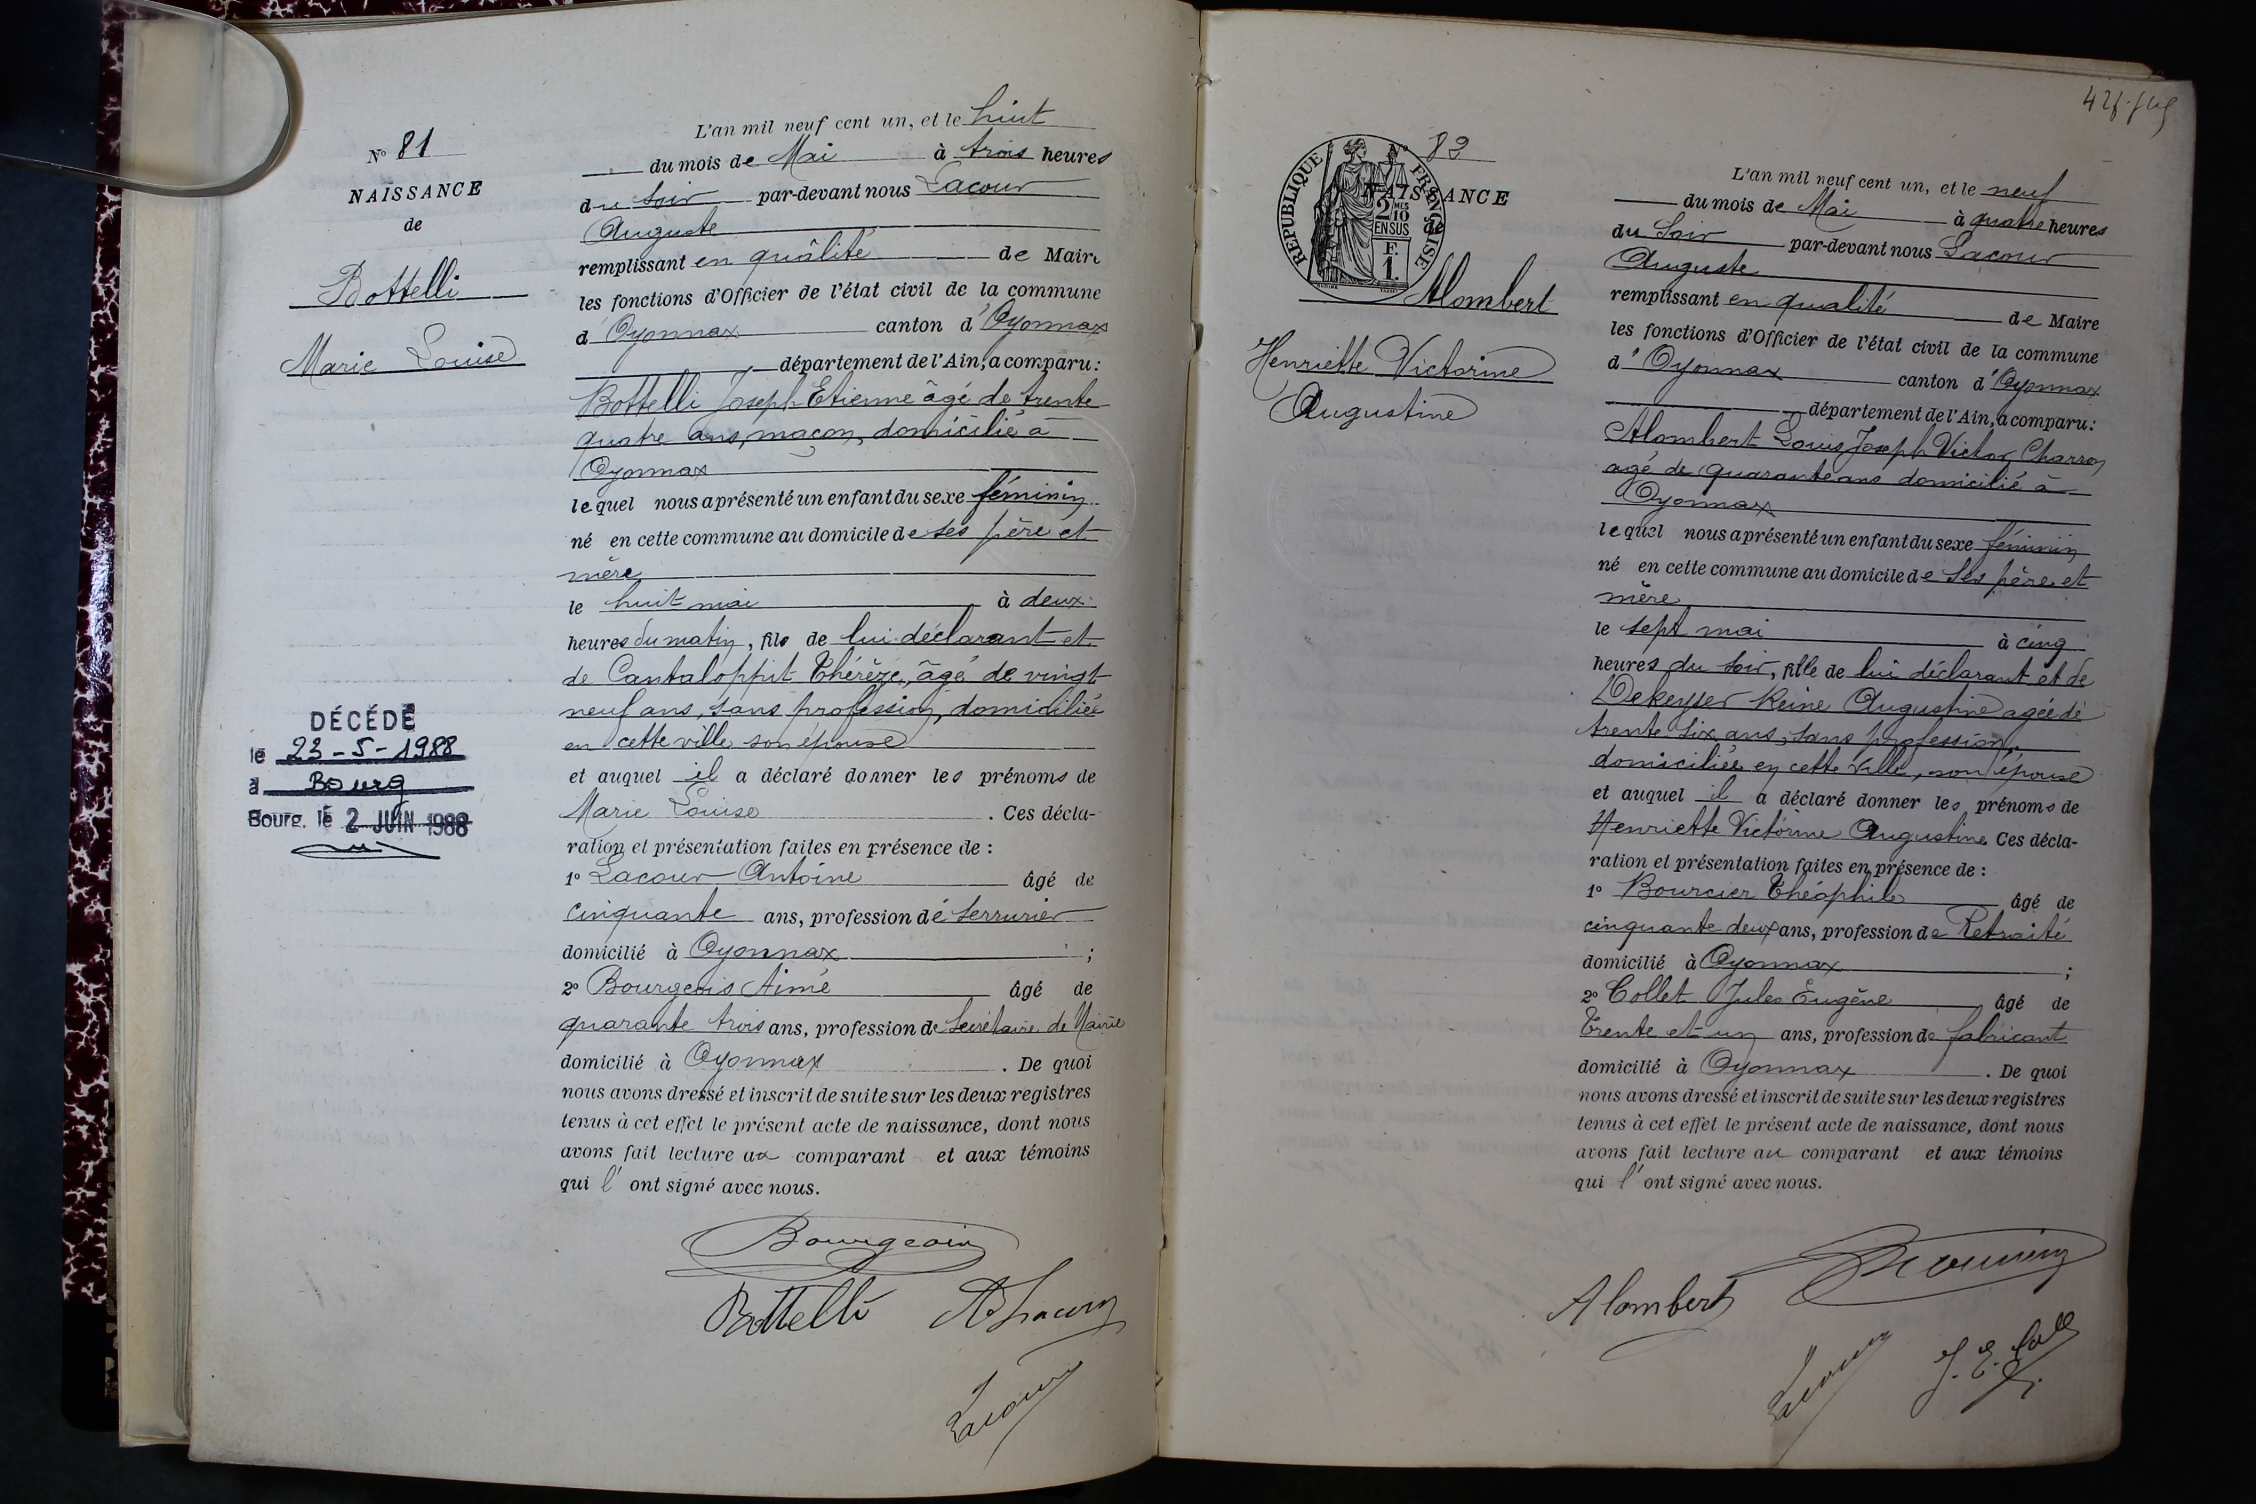 N° 81
NAISSANCE
de
Bottelli
Marie Louise
DÉCÉDÉ
le 23-5-1988
à Bourg
Bourg, le 2 JUIN 1988
L'an mil neuf cent un, et le huit
du mois de Mai à trois heures
du soir par-devant nous Lacour
Auguste
remplissant en quâlité de Maire
les fonctions d'Officier de l'état civil de la commune
d'Oyonnax canton d'Oyonnax
département de l'Ain, a comparu :
Bottelli Joseph Etienne âgé de trente
quatre ans, maçon, domicilié à
Oyonnax
lequel nous a présenté un enfant du sexe féminin
né en cette commune au domicile de ses père et
mère
le huit mai à deux
heures du matin, fils de lui déclarant et
de Cantaloppit Thérèze, âgé de vingt
neuf ans, sans profession, domiciliée
en cette ville son épouse
et auquel il a déclaré donner les prénoms de
Marie Louise . Ces décla-
ration et présentation faites en présence de :
1° Lacour Antoine âgé de
cinquante ans, profession de serrurier
domicilié à Oyonnax ;
2° Bourgeois Aimé âgé de
quarante trois ans, profession de Secrétaire de Mairie
domicilié à Oyonnax . De quoi
nous avons dressé et inscrit de suite sur les deux registres
tenus à cet effet le présent acte de naissance, dont nous
avons fait lecture au comparant et aux témoins
qui l'ont signé avec nous.
Bourgeois
Bottelli
Lacour
N° 82
NAISSANCE
de
RÉPUBLIQUE FRANÇAISE
2/10 EN SUS
F. 1.
Alombert
Henriette Victorine
Augustine
L'an mil neuf cent un, et le neuf
du mois de Mai à quatre heures
du Soir par-devant nous Lacour
Auguste
remplissant en qualité de Maire
les fonctions d'Officier de l'état civil de la commune
d'Oyonnax canton d'Oyonnax
département de l'Ain, a comparu :
Alombert Louis Joseph Victor Charron
agé de quarante ans domicilié à
Oyonnax
lequel nous a présenté un enfant du sexe féminin
né en cette commune au domicile de ses père et
mère
le sept mai à cinq
heures du soir, fille de lui déclarant et de
Dekeyser Reine Augustine agée de
trente six ans, sans profession,
domiciliée en cette ville, son épouse
et auquel il a déclaré donner les prénoms de
Henriette Victorine Augustine Ces décla-
ration et présentation faites en présence de :
1° Bourcier Théophile âgé de
cinquante deux ans, profession de Retraité
domicilié à Oyonnax ;
2° Collet Jules Eugène âgé de
Trente et un ans, profession de fabricant
domicilié à Oyonnax . De quoi
nous avons dressé et inscrit de suite sur les deux registres
tenus à cet effet le présent acte de naissance, dont nous
avons fait lecture au comparant et aux témoins
qui l'ont signé avec nous.
Alombert
Lacour